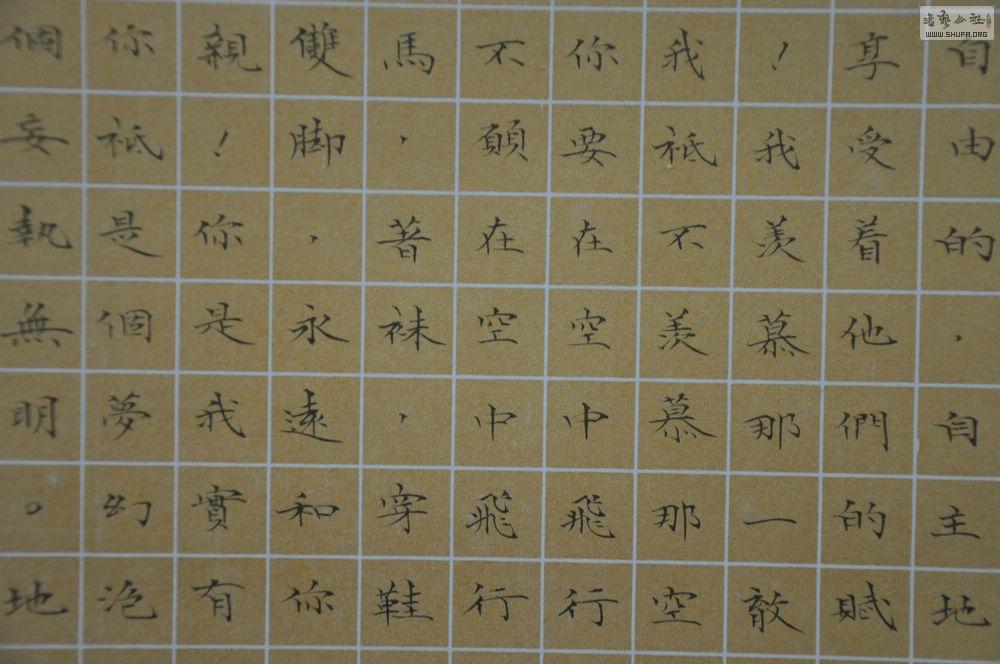 自由的，自主地
享受着他們的賦
！我羨慕那一散
我祗不羨慕那空
你要在空中飛行
不願在空中飛行
馬，著袜，穿鞋
雙脚，永遠和你
親！你是我實有
你祗是個夢幻泡
個妄執無明。地
WWW.SHUFA.ORG